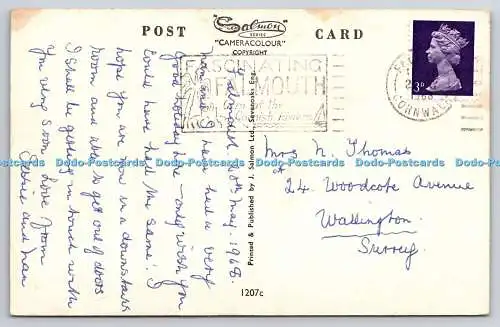 POST CARD
Salmon
SERIES
"CAMERACOLOUR"
COPYRIGHT
FASCINATING
FALMOUTH
on the
Cornish Riviera
3D
CORNWALL
1968
Falmouth. May. 1968.
Nan and I have had a very
good holiday here - only wish you
could have had the same. I
hope you are now in a downstairs
room and able to get out of doors
I shall be getting in touch with
you very soon. Love from
and Nan
Printed & Published by J. Salmon Ltd., Sevenoaks Eng.
1207c
Mrs N. Thomas
24. Woodcote Avenue
Wallington.
Surrey
Dodo-Postcards